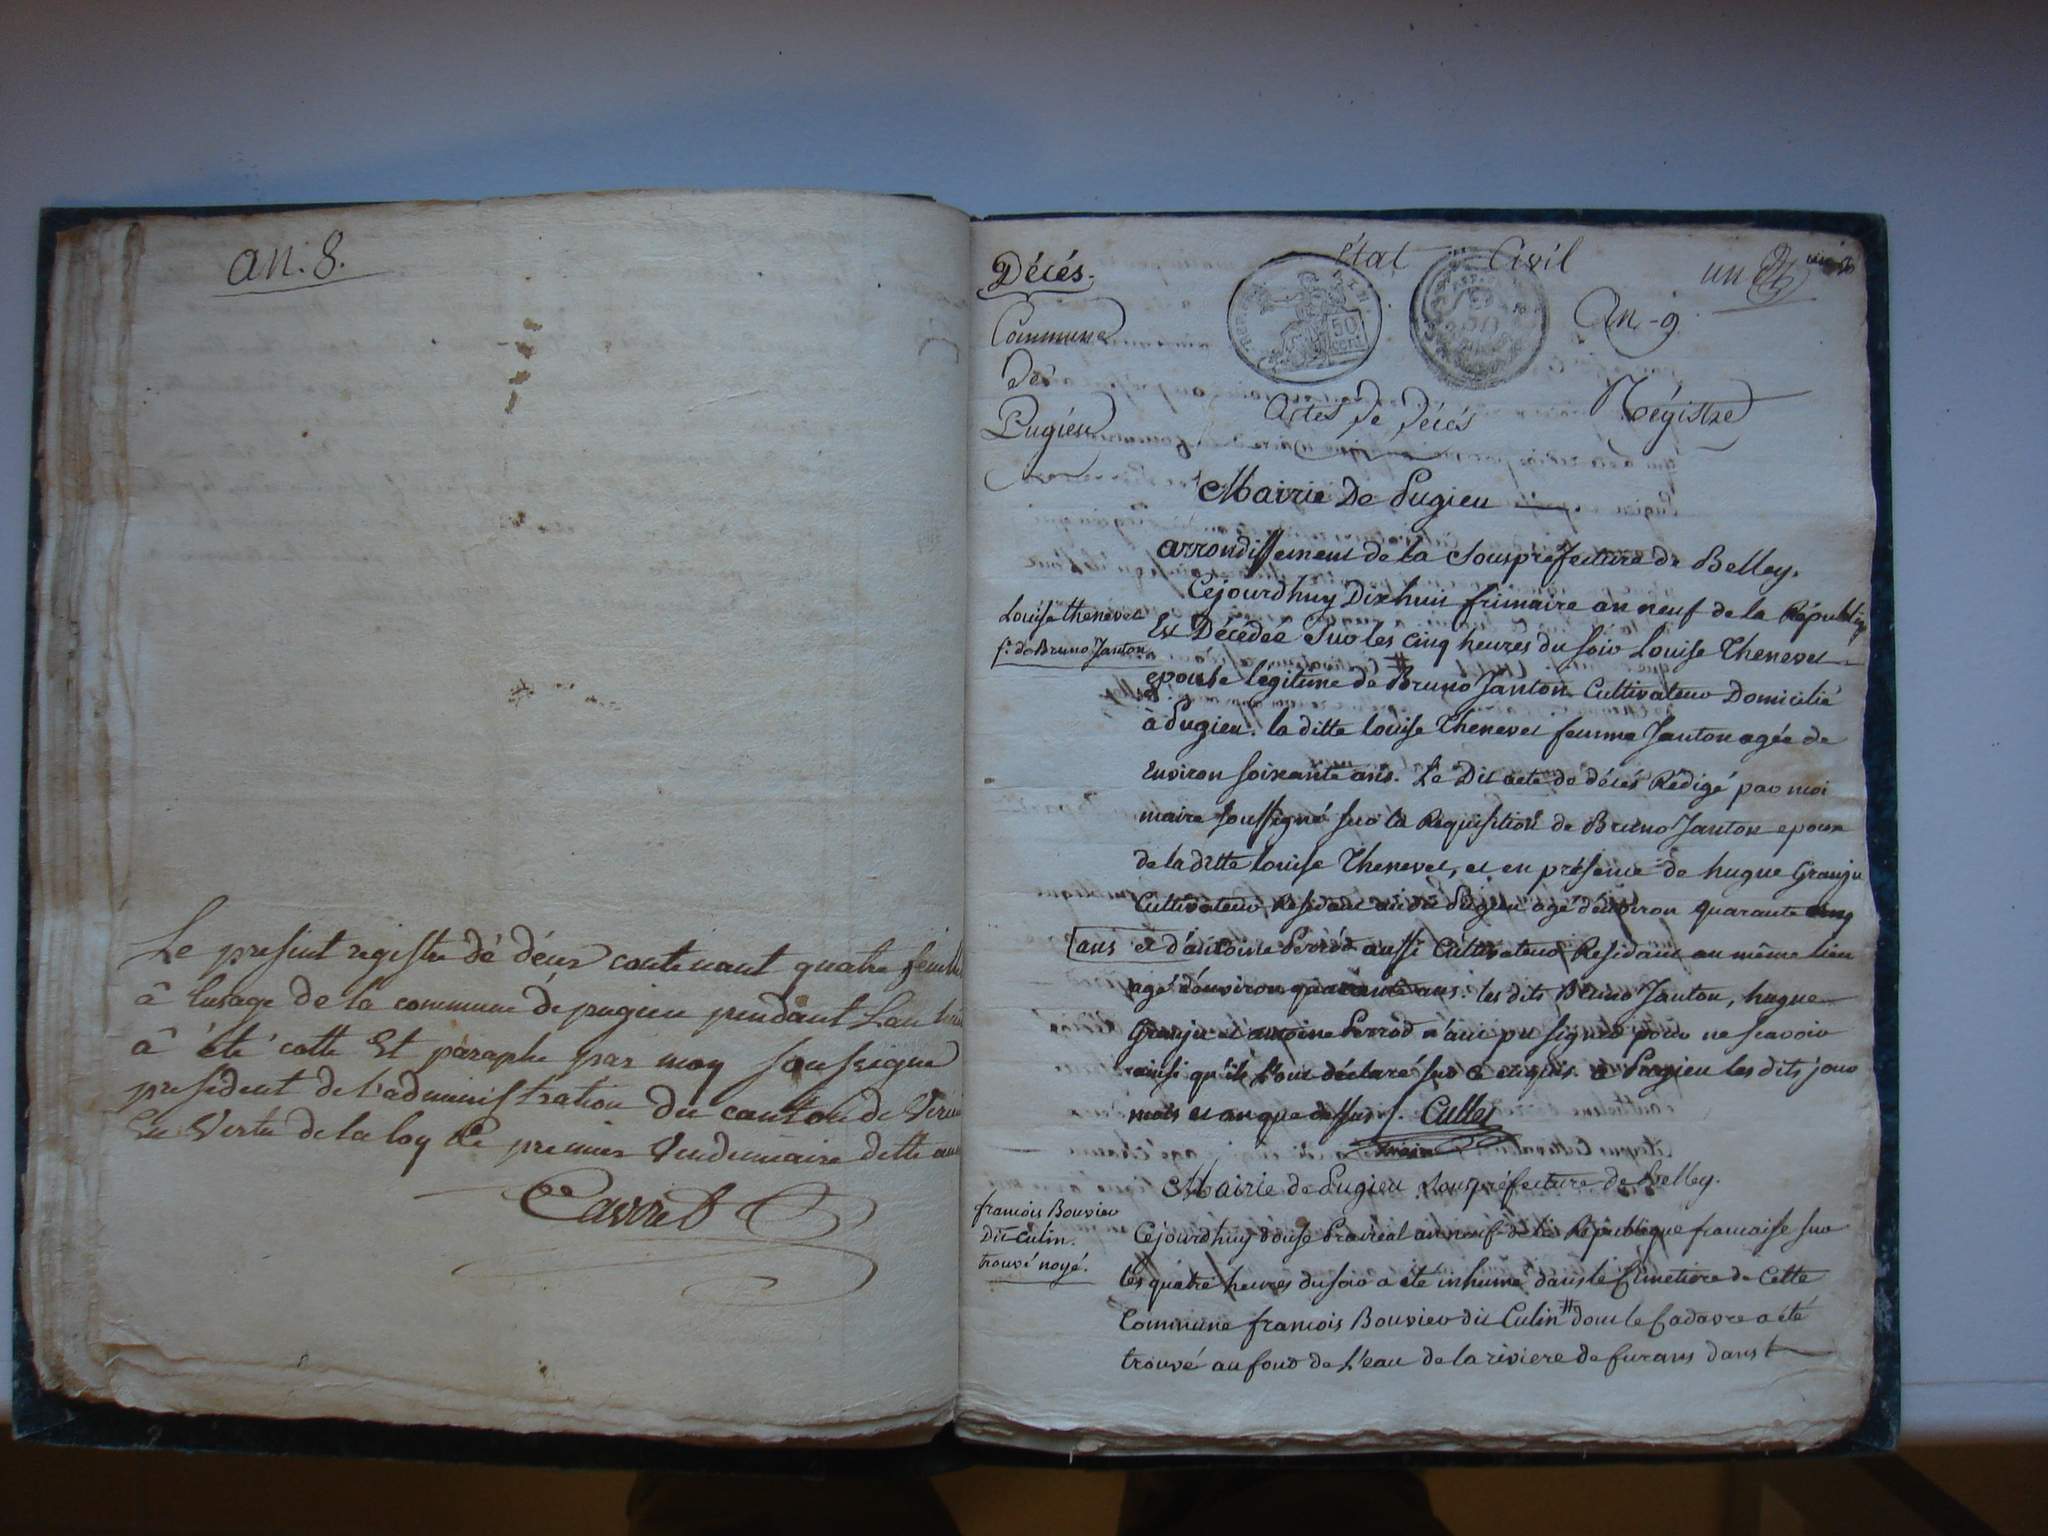 an. 8.
Le present registre dé décès contenant quatre feuille
â lusage de la commune de pugieu pendant Lan huit
â été cotte Et paraphe par moy soussigne
president de l'administration du canton de Virieu
En Vertu de la loy Le premier Vendemiaire dette an
Cavrel
Décés.
état Civil
un
Commune
de
Pugieu
50
cent.
An - 9
Actes de Décés
Régistre
Mairie De Pugieu
arrondissement de la Souspréfecture de Belley.
Louise thenevet
fe. de Bruno Janton
Cejourdhuy Dixhuit frimaire an neuf de la Républiq
Est Décedée Sur les cinq heures du soir Louise Thenevet
epouse legitime de Bruno Janton Cultivateur Domicilié
à Pugieu. la ditte louise Thenevet femme Janton agée de
Environ soixante ans. Le Dit acte de décés Rédigé par moi
maire soussigné sur la Requisition de Bruno Janton epoux
de la ditte louise Thenevet, et en présence de hugue Granju
Cultivateur Residant audit Pugieu agé d'environ quarante cinq
ans et d'antoine Perrod aussi Cultivateur Residant au même lieu
agé d'environ quarante ans. les dits Bruno Janton, hugue
Granju et antoine Perrod n'ont pu signer pour ne scavoir
ainsi qu'ils l'ont déclaré sur ce enquis. à Pugieu les dits jour
mois et an que dessus /. Cullet
maire
Mairie de Pugieu Souspréfecture de Belley.
francois Bouvier
Dit Culin.
trouvé noyé.
Cejourdhuy douse Prairéal an neuf de la République francaise sur
les quatre heures du soir a été inhumé dans le Cimetiere de Cette
Commune francois Bouvier dit Culin # dont le Cadavre a été
trouvé au fond de L'eau de la riviere de furans dans l